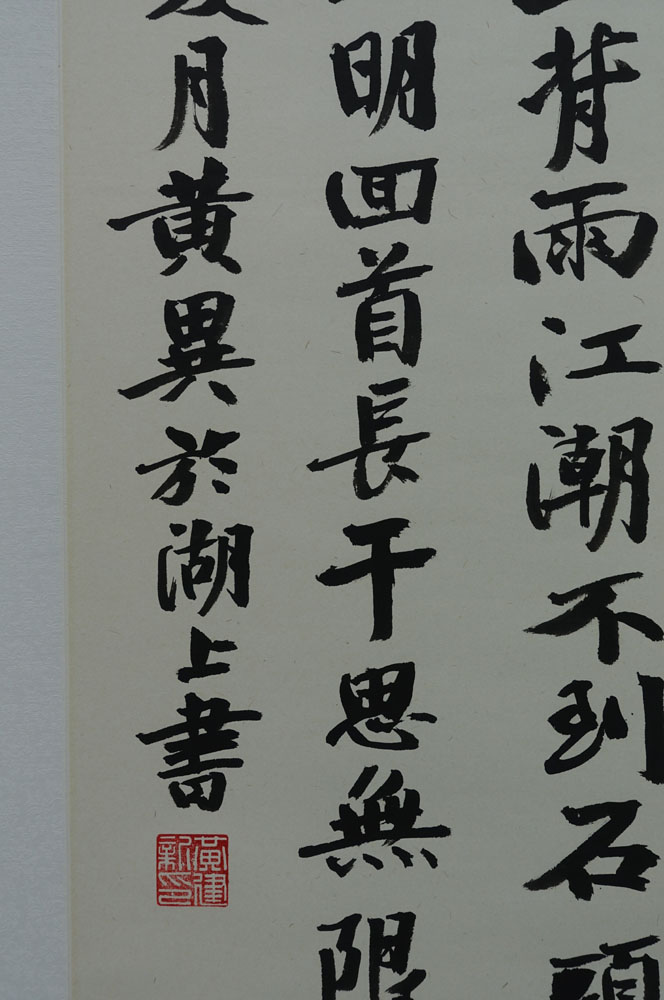 背雨江潮不到石頭
明回首長干思無限
月黃異於湖上書
黃建
新印